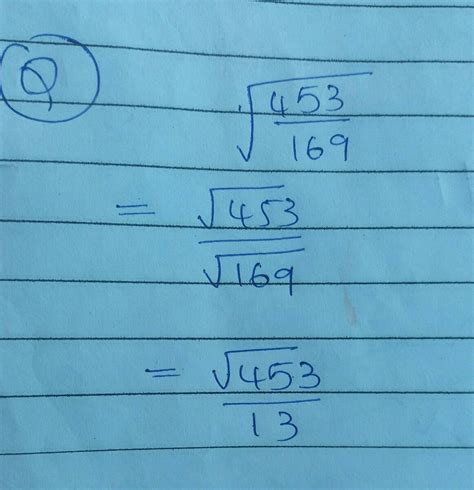 Q
√(453/169)
= √453/√169
= √453/13